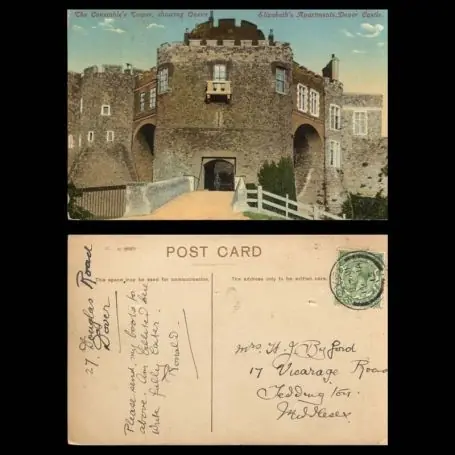 The Constable's Tower, showing Queen Elizabeth's Apartments, Dover Castle.
POST CARD
This space may be used for communication.
The address only to be written here.
27 Douglas Road
Dover
Please send my books to
above. Am billeted here
Write fully later.
Ronald.
Mrs. H. J. Byford
17 Vicarage Road
Teddington
Middlesex